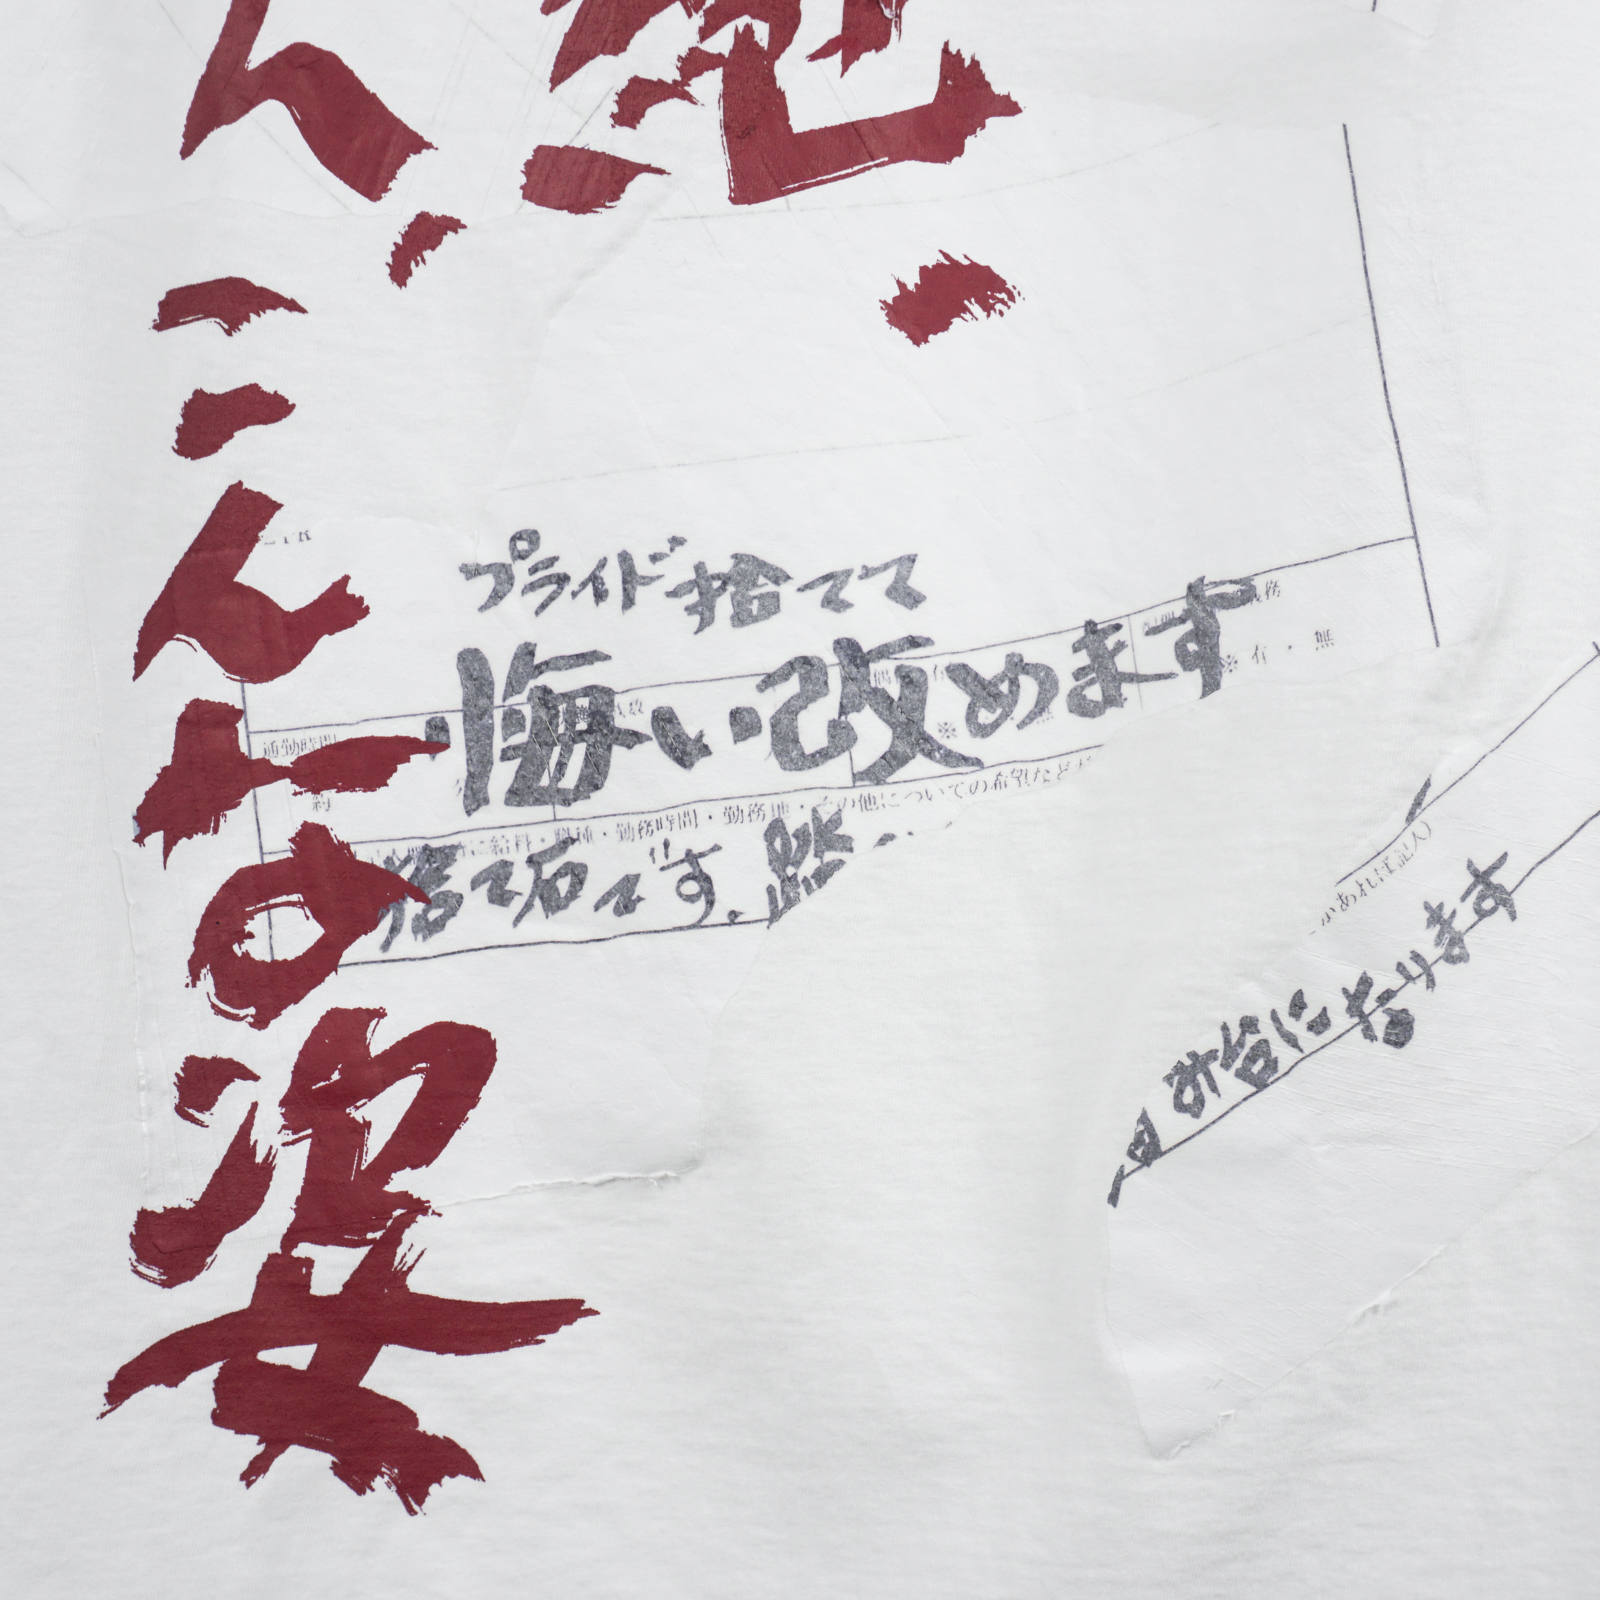 免、
ん、こんな姿
プライド捨てて
悔い改めます
通勤時間
約
務
※ 有 ・ 無
に給料・職種・勤務時間・勤務地・その他についての希望など
捨て石です。
があれば記入)
み台になります